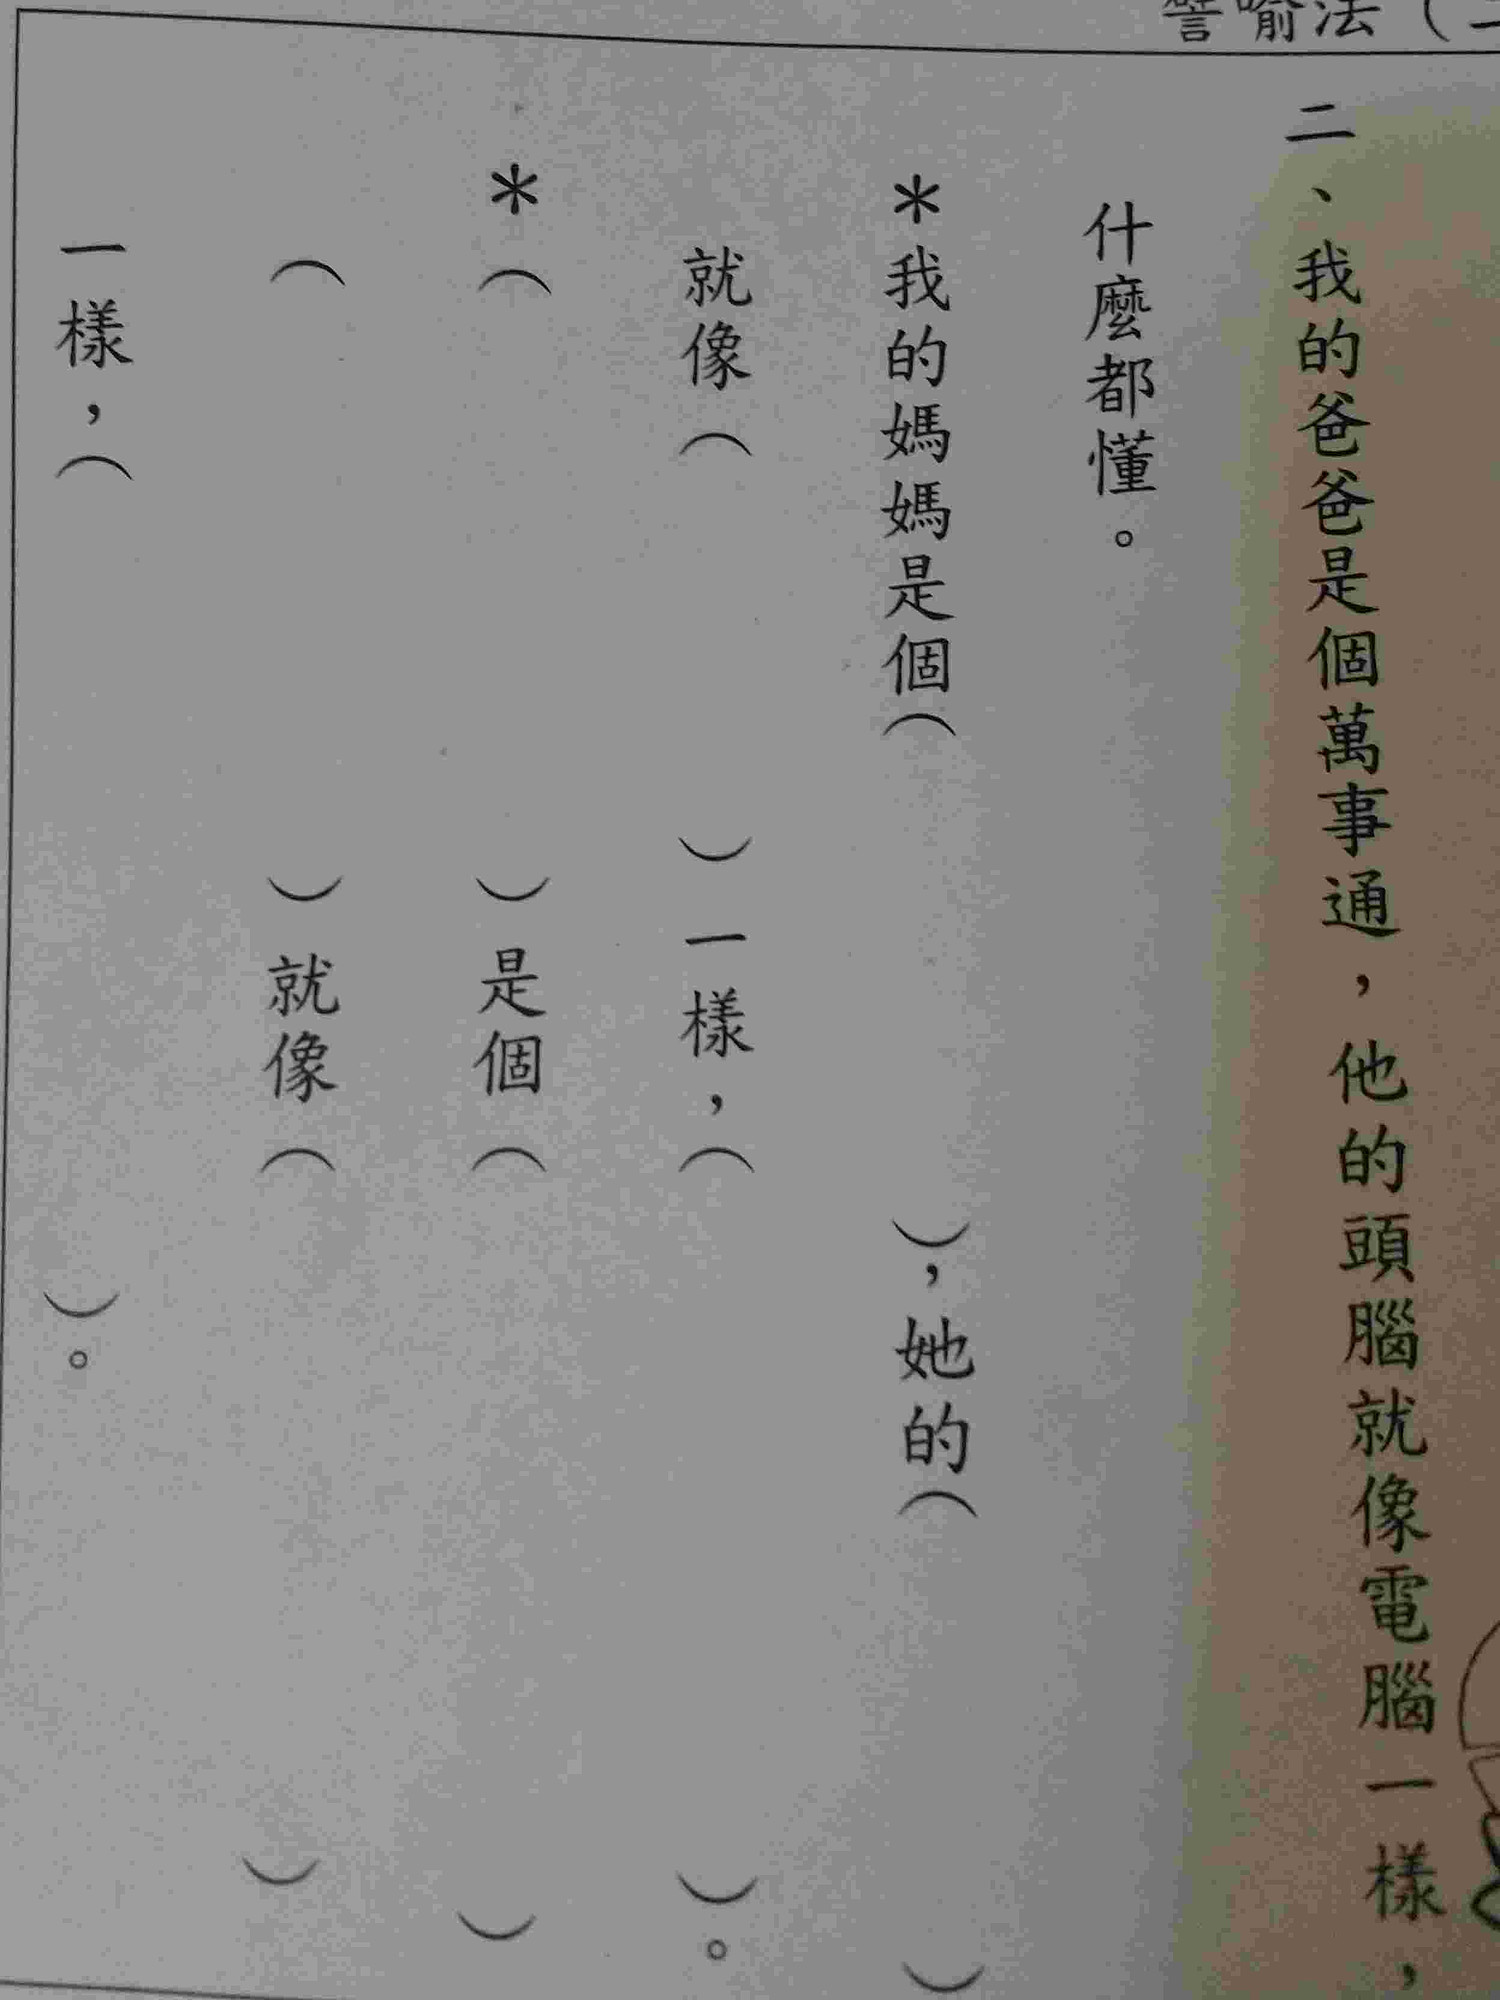 譬喻法（二
二、我的爸爸是個萬事通，他的頭腦就像電腦一樣，
什麼都懂。
＊我的媽媽是個（　　　　　　），她的（　　　　　　）
就像（　　　　　　）一樣，（　　　　　　）。
＊（　　　　　　）是個（　　　　　　）
（　　　　　　）就像（　　　　　　）
一樣，（　　　　　　）。